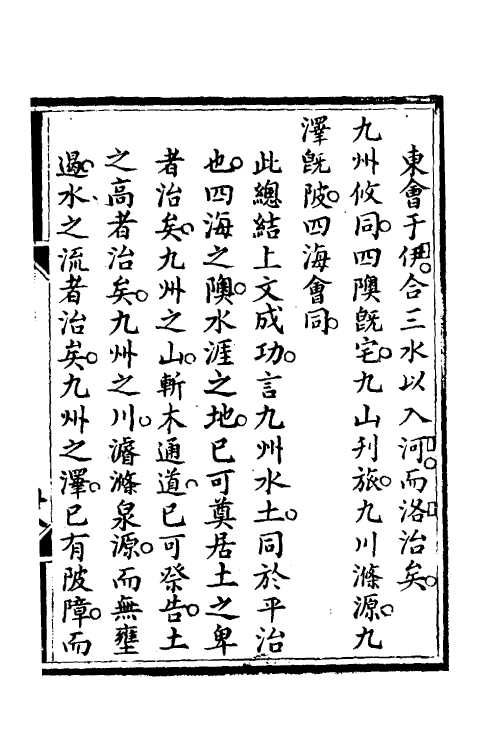 東會于伊合三水以入河而洛治矣
九州攸同四隩既宅九山刋旅九川滌源九
澤既陂四海會同
此總結上文成功言九州水土同於平治
也四海之隩水涯之地已可奠居土之卑
者治矣九州之山斬木通道已可祭告土
之高者治矣九州之川濬滌泉源而無壅
遏水之流者治矣九州之澤已有陂障而